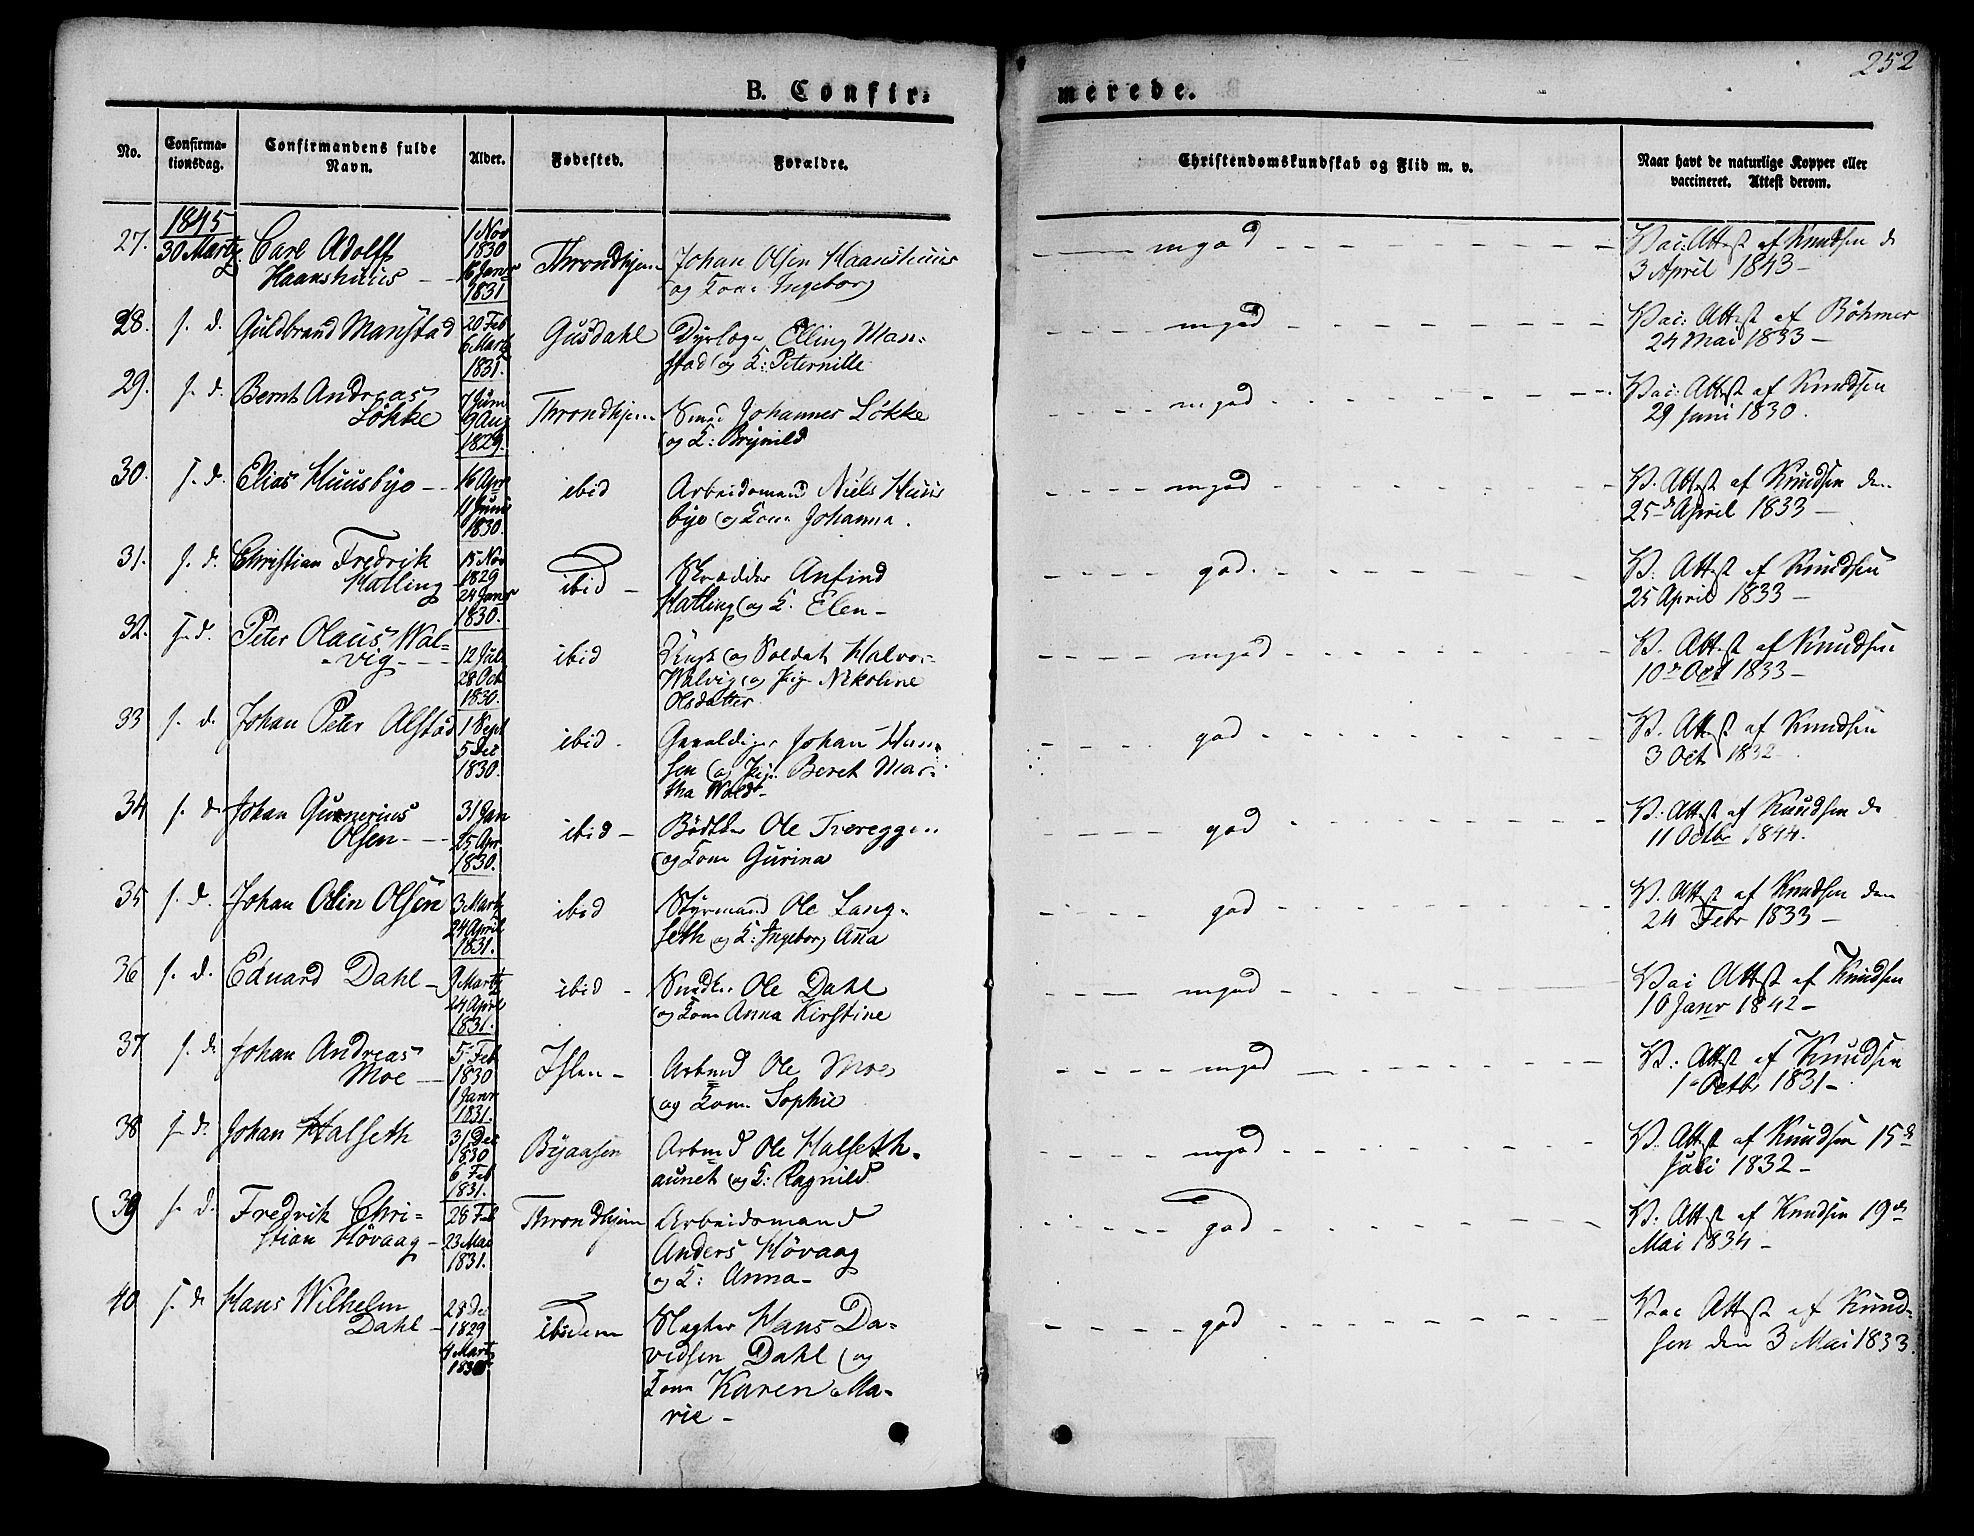 252
B. Confirmerede.
No.
Confirmationsdag.
Confirmandens fulde Navn.
Alder.
Fødested.
Forældre.
Christendomskundskab og Flid m. v.
Naar havt de naturlige Kopper eller vaccineret. Attest derom.
1845
27. 30 Martz Carl Adolff 1 Nov 1830 Throndhjem Johan Olsen Haanshuus mgod Vac: Attest af Knudsen d
Haanshuus 16 Janr 1831 og Kone Ingeborg 3 April 1843
28. s. d. Guldbrand Manstad 20 Feb Gusdahl Elling Man- mgod Vac: Attest af Böhmer
6 Martz 1831. stad og K: Peternille 24 Mai 1833
29. s. d. Bernt Andreas 7 Juni Throndhjem Smed Johannes Lökke mgod Vac: Attest af Knudsen
Lökke 9 Aug 1829. og K: Brynild 29 Juni 1830.
30. s. d. Elias Huusbye 16 Apr ibid Arbeidsmand Niels Huus mgod V. Attest af Knudsen den
11 Juni 1830. bye og Kone Johanna. 25de April 1833
31. s. d. Christian Fredrik 15 Nov 1829 ibid Skrædder Anfind god. V. Attest af Knudsen
Hatling 24 Janr 1830. Hatling og K. Elen 25 April 1833
32. s. d. Peter Olaus Wal- 12 Juli ibid og Soldat Halvor mgod V. Attest af Knudsen
vig 28 Oct 1830. Walvig og Pige Nikoline 10de Oct 1833
Olsdatter
33 s. d. Johan Peter Alstad 1 Sept ibid Gevaldiger Johan Han- god V. Attest af Knudsen
5 Dec 1830. sen og Pige Beret Mar- 3 Oct 1832
tha Wold
34 s. d. Johan Gunnerius 31 Jan ibid Bödker Ole Træreggen god V. Attest af Knudsen d
Olsen 25 Apr 1830. og Kone Gurina 11 Octbr 1844.
35 s. d. Johan Odin Olsen 3 Martz ibid Styrmand Ole Lang- god V. Attest af Knudsen den
24 April 1831. seth og K: Ingeborg Ana 24 Febr 1833
36 s. d. Eduard Dahl 9 Martz ibid Snedker Ole Dahl mgod Vac Attest af Knudsen
24 April 1831. og Kone Anna Kirstine 10 Janr 1842
37 s. d. Johan Andreas 5 Feb 1830 Ihlen Arbmd Ole Moe mgod V: Attest af Knudsen
Moe 1 Janr 1831. og Kone Sophie 1 Octbr 1831
38 s. d. Johan Halseth 31 Dec 1830 Byaasen Arbmd Ole Halseth- mgod V. Attest af Knudsen 15de
6 Feb 1831. aunet og K: Ragnild Juli 1832
39 s. d. Fredrik Chri- 28 Feb Throndhjem Arbeidsmand god V. Attest af Knudsen 19de
stian Hövaag 23 Mai 1831. Anders Hövaag Mai 1834
og K: Anna
40 s. d. Hans Wilhelm 28 Dec 1829 ibidem Slagter Hans Da- god Vac Attest af Knud-
Dahl 4 Martz vidsen Dahl og sen den 3 Mai 1833.
Kone Karen Ma-
rie